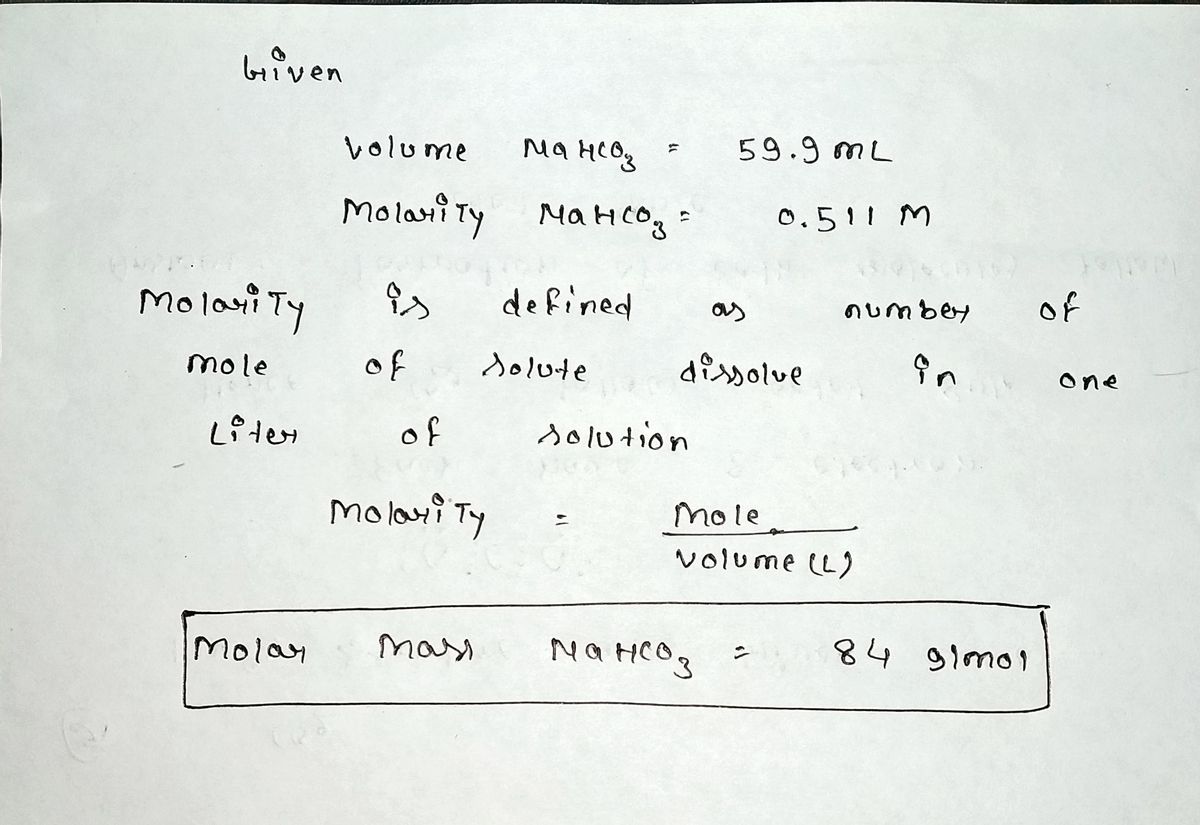 Given
Volume NaHCO₃ = 59.9 mL
Molarity NaHCO₃ = 0.511 M
Molarity is defined as number of
mole of solute dissolve in one
Liter of solution
Molarity = Mole
Volume (L)
Molar mass NaHCO₃ = 84 g/mol